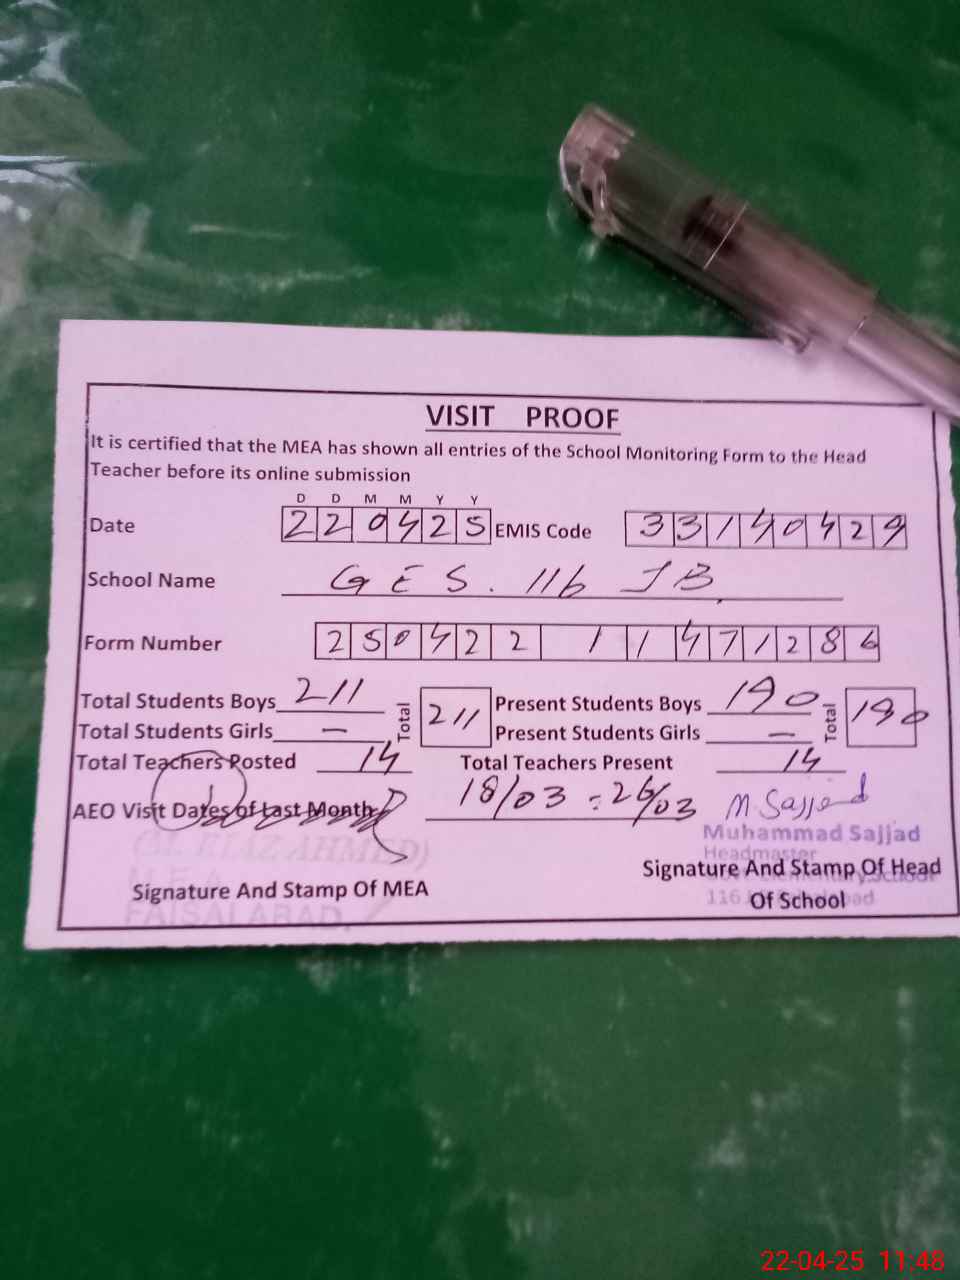 VISIT PROOF
It is certified that the MEA has shown all entries of the School Monitoring Form to the Head
Teacher before its online submission
D D M M Y Y
Date 220425 EMIS Code 33140429
School Name GES. 116 JB
Form Number 250422 11471286
Total Students Boys 211 Total 211 Present Students Boys 190 Total 190
Total Students Girls — Present Students Girls —
Total Teachers Posted 14 Total Teachers Present 14
AEO Visit Dates of Last Month 18/03 - 26/03 M. Sajjad
Muhammad Sajjad
(M. RIAZ AHMED) Headmaster
Signature And Stamp Of MEA Signature And Stamp Of Head
FAISALABAD. 116 Of School
22-04-25 11:48